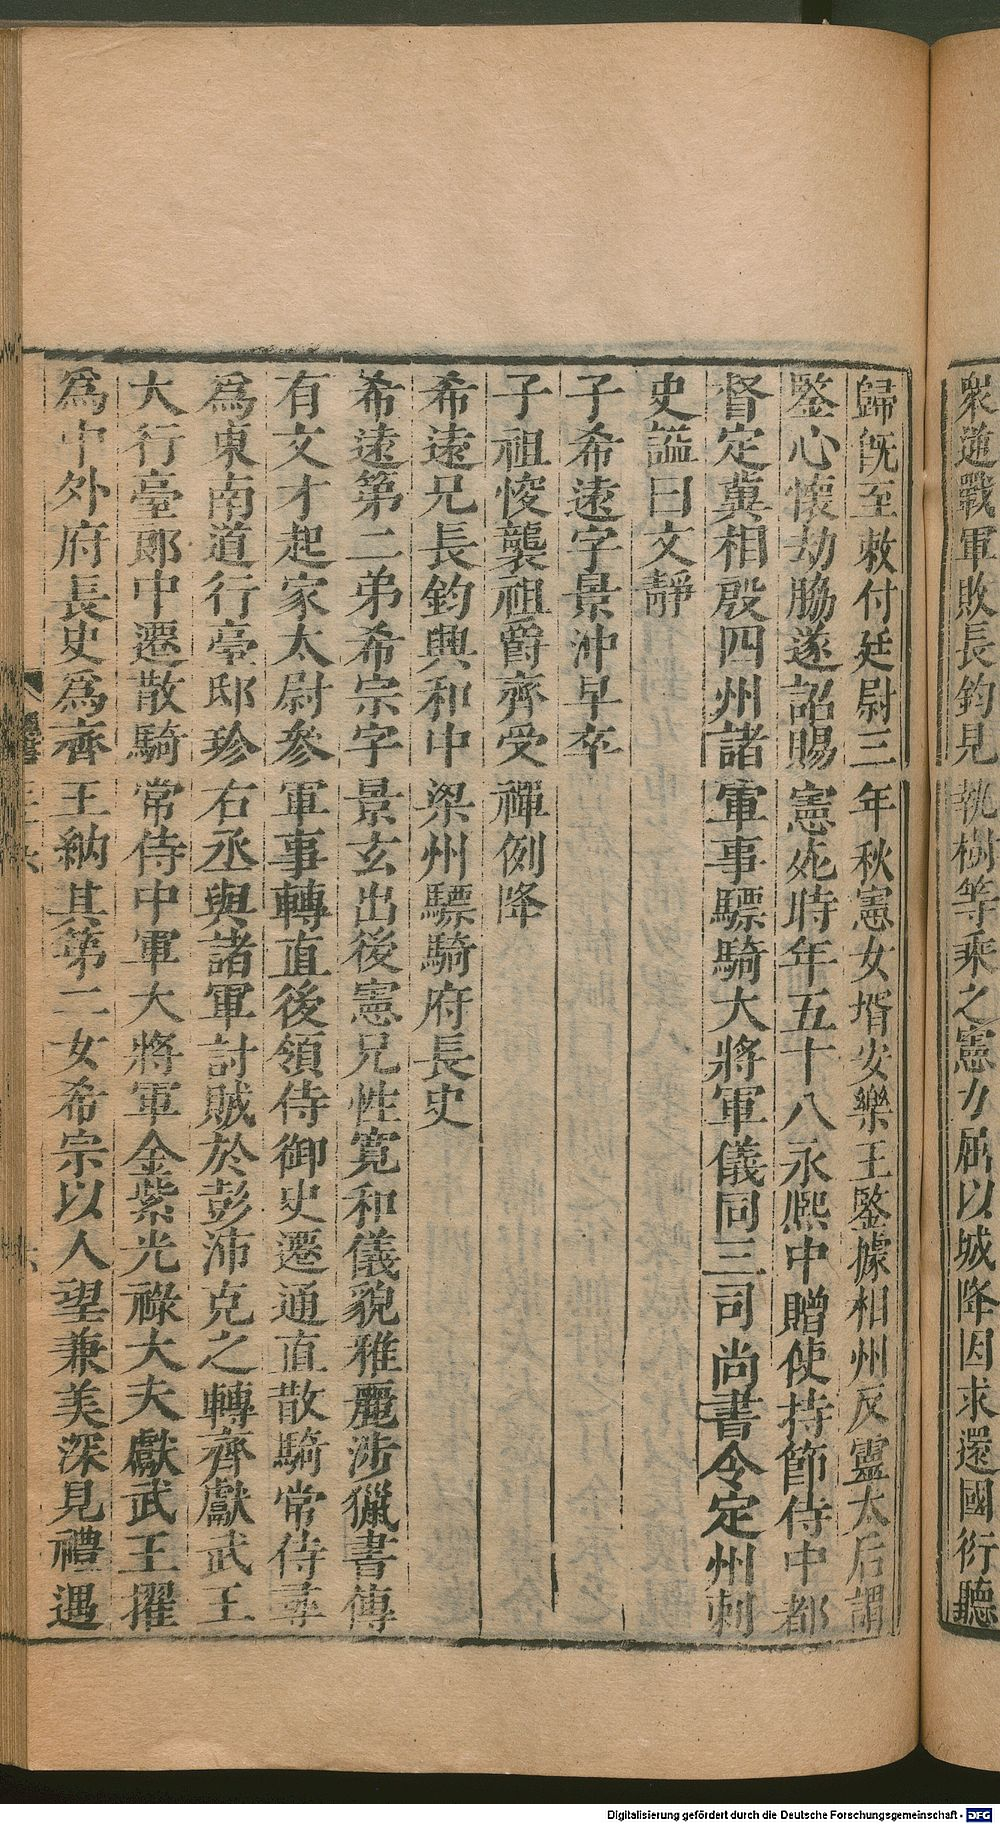 衆逆戰軍敗長鈞見執樹等乘之憲力屈以城降因求還國衍聽
歸旣至敕付廷尉三年秋憲女壻安樂王鑒據相州反靈太后謂
鑒心懷劫脇遂詔賜憲死時年五十八永熙中贈使持節侍中都
督定冀相殷四州諸軍事驃騎大將軍儀同三司尚書令定州刺
史謚曰文靜
子希遠字景沖早卒
子祖悛襲祖爵齊受禪例降
希遠兄長鈞興和中梁州驃騎府長史
希遠第二弟希宗字景玄出後憲兄性寬和儀貌雅麗涉獵書傳
有文才起家太尉參軍事轉直後領侍御史遷通直散騎常侍尋
爲東南道行臺邸珍右丞與諸軍討賊於彭沛克之轉齊獻武王
大行臺郎中遷散騎常侍中軍大將軍金紫光祿大夫獻武王擢
爲中外府長史爲齊王納其第二女希宗以人望兼美深見禮遇
Digitalisierung gefördert durch die Deutsche Forschungsgemeinschaft - DFG